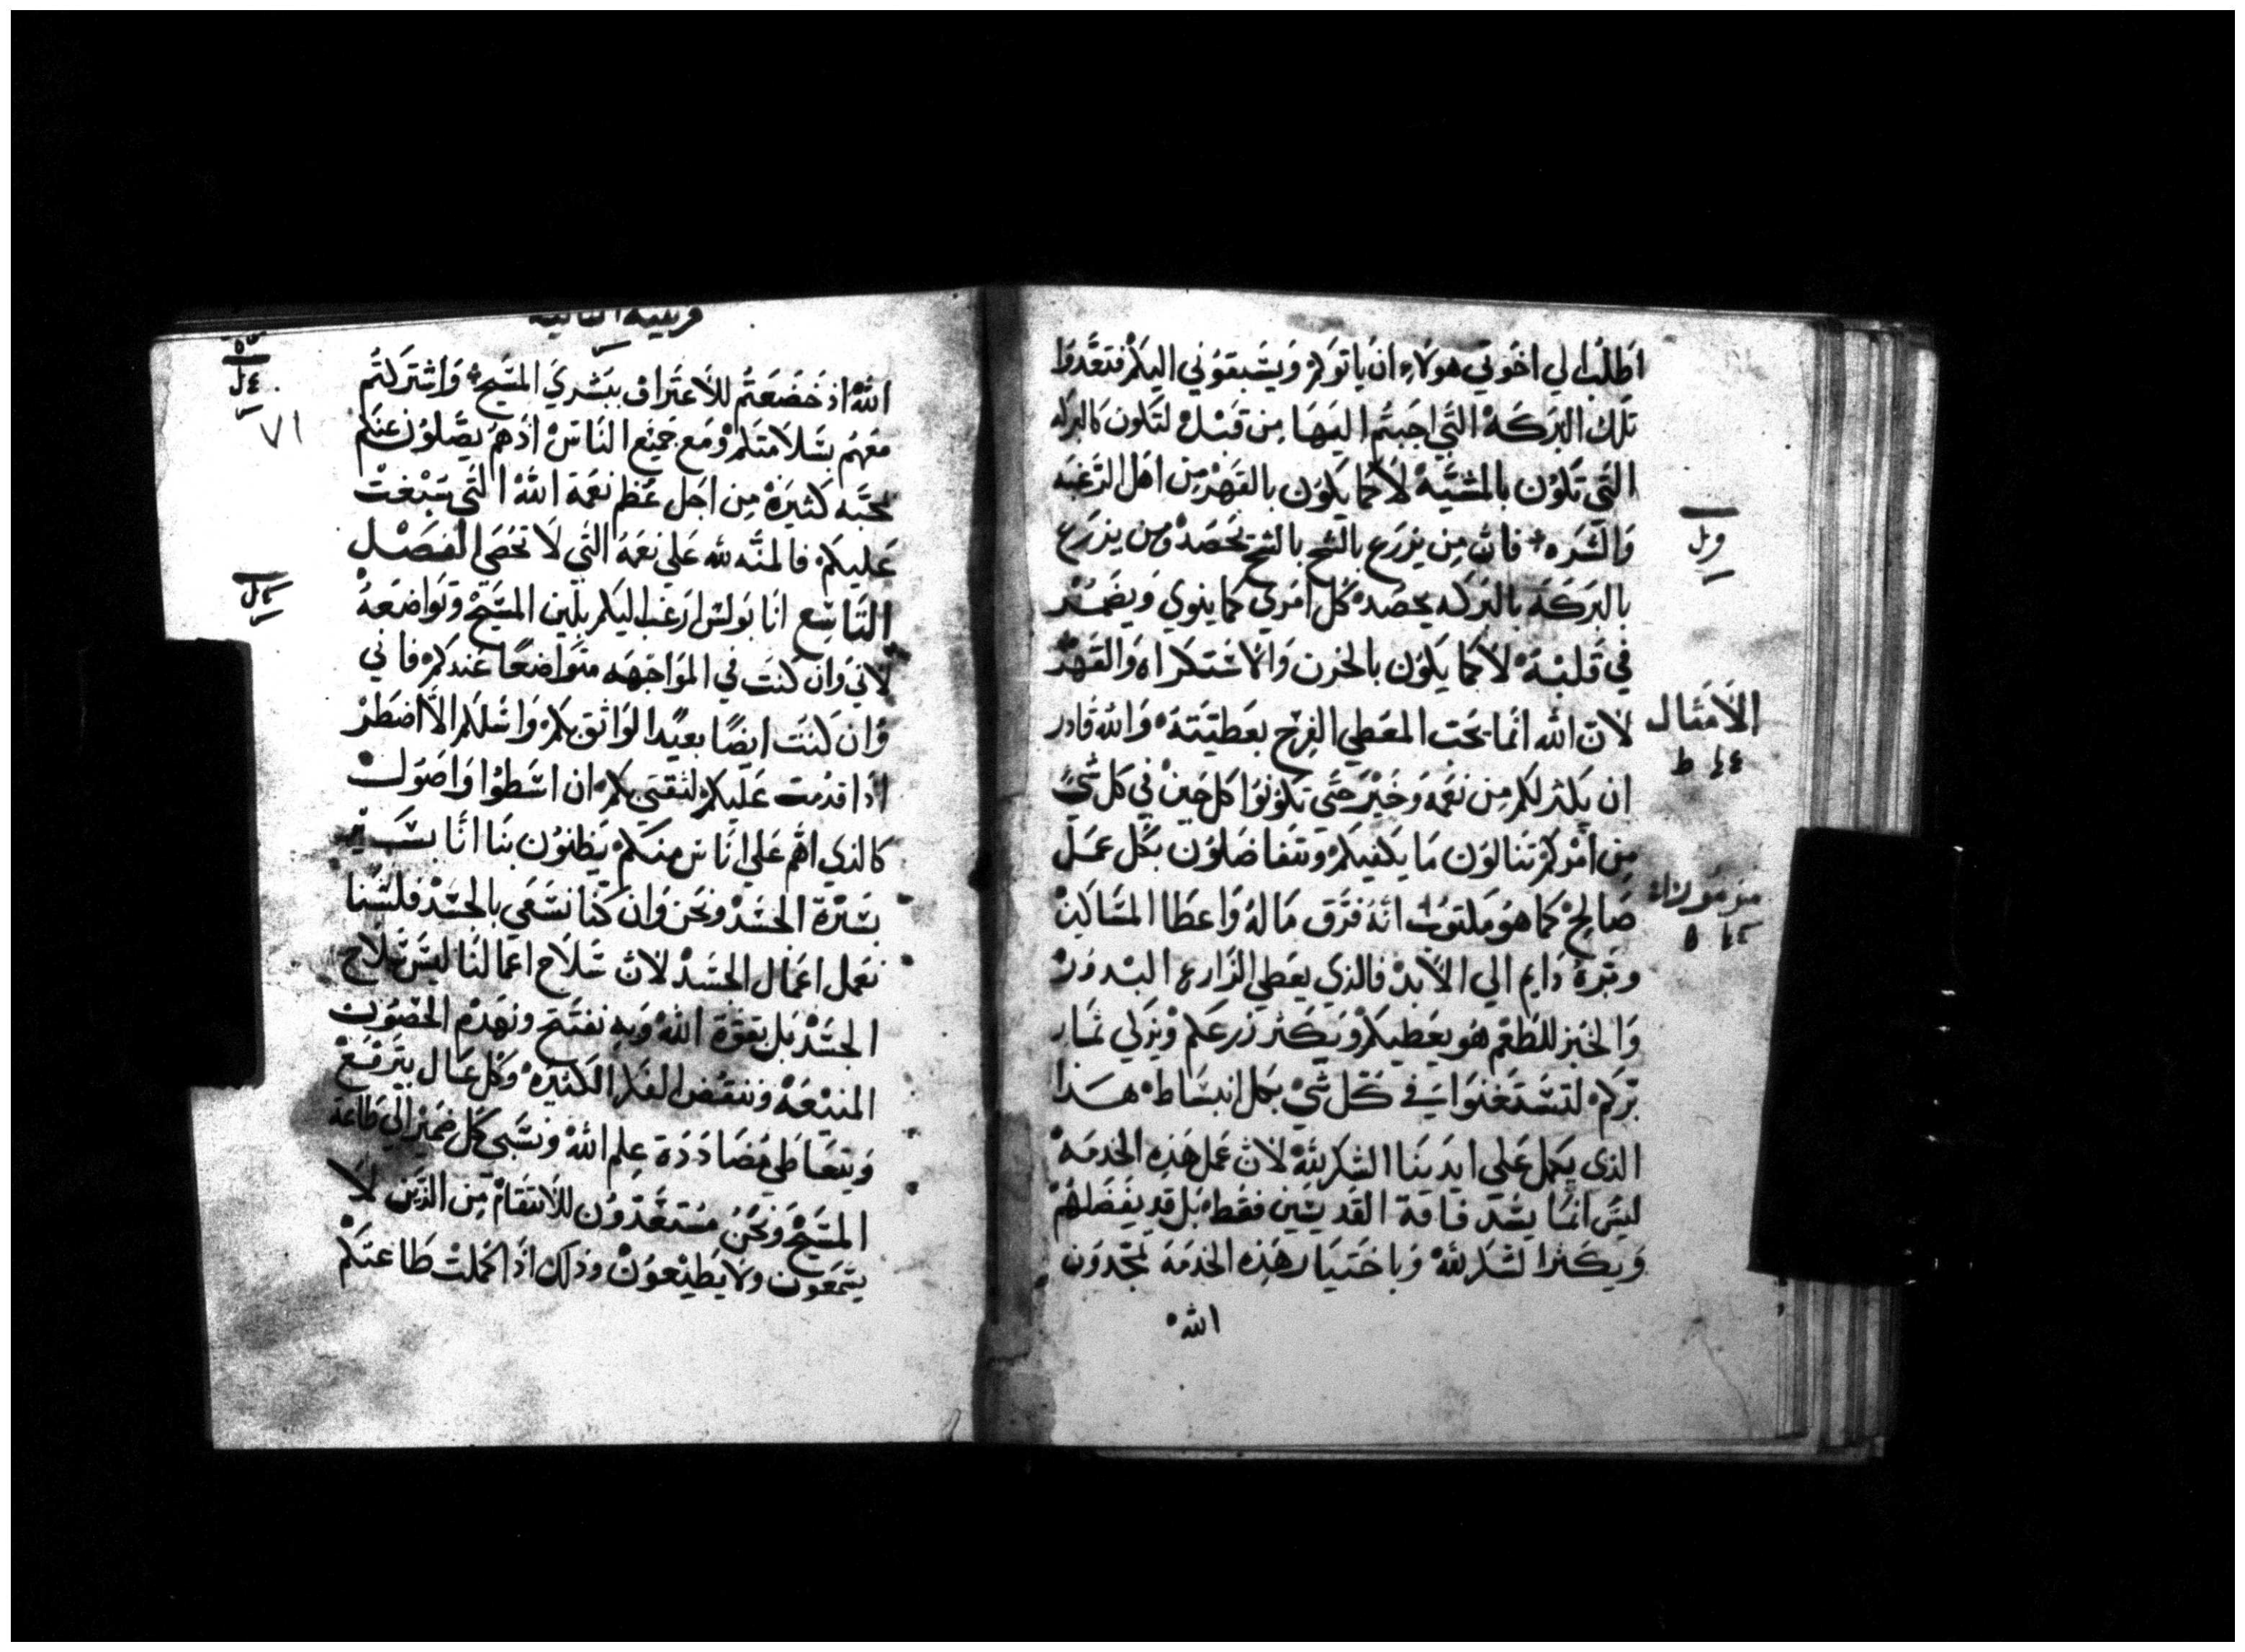 اطلب الي اخوتي هولاء ان ياتوكم ويسبقوني اليكم فتعدوا
تلك البركة التي اجبتم اليها من قبل لتكون كالبركه
التي تكون بالمشية لا كما يكون بالقهر من اهل الرغبه
والشره فان من يزرع بالشح بالشح يحصد ومن يزرع
بالبركة بالبركه يحصد كل امري كما ينوي ويضمر
في قلبه لا كما يكون بالحزن والاستكراه والقهر
لان الله انما يحب المعطي الفرح بعطيته والله قادر
الامثال
ان يكثر لكم من نعمه وخير حتي تكونوا كل حين في كل شي
من امركم تنالون ما يكفيكم وتتفاضلون بكل عمل
صالح كما هو مكتوب انه فرق ماله واعطا المساكين
مزمور
وبره دايم الي الابد فالذي يعطي الزارع البدور
والخبز للطعم هو يعطيكم ويكثر زرعكم ويزكي ثمار
بركم لتستغنوا في كل شي بكل انبساط هدا
الذي يكمل علي ايدينا الشكر لله لان عمل هذه الخدمه
ليس انما يسد فاقة القديسين فقط بل قد يفضلهم
ويكثر الشكر لله وباختيار هذه الخدمه تمجدون
الله
الثانية
٧١
الله اذ خضعتم للاعتراف ببشري المسيح واشتركتم
معهم بسلامتكم ومع جميع الناس اذ هم يصلون عنكم
محبه كثيرة من اجل عظم نعمة الله التي سبغت
عليكم فالمنه لله علي نعمه التي لا تحصي الفصل
التاسع انا بولس ارغب اليكم بلين المسيح وتواضعه
لاني وان كنت في المواجهه متواضعا عندكم فاني
وان كنت ايضا بعيدا لواثق بكم واسلكم الا اضطر
اذا قدمت عليكم لثقتي بكم ان اسطوا واصول
كالذي اهم علي اناس منكم يظنون بنا انا بسير
بسيرة الجسد ونحن وان كنا نسعي بالجسد فلسنا
نعمل اعمال الجسد لان سلاح اعمالنا ليس سلاح
الجسد بل بقوة الله وبه نفتح ونهدم الحصون
المنيعه وننقض الفكر الكثيره وكل عال يترفع
ويتعاطي مضاددة علم الله ونسبي كل ضمير الي طاعة
المسيح ونحن مستعدون للانتقام من الذين لا
يسمعون ولا يطيعون وذلك اذا كملت طاعتكم